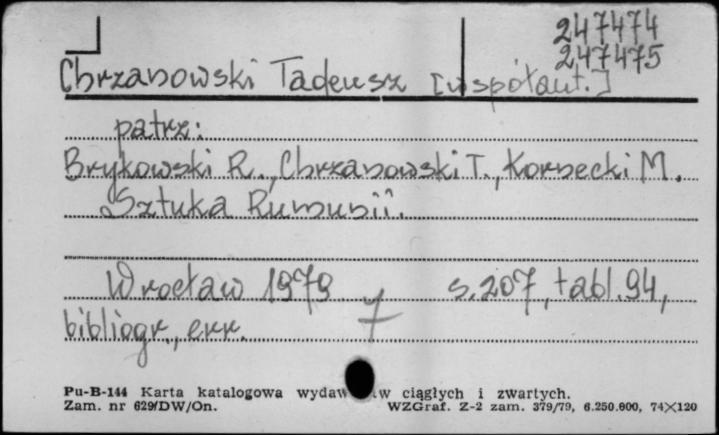 247474
247475
Chrzanowski Tadeusz [współaut.]
patrz:
Brykowski R., Chrzanowski T., Kornecki M.
Sztuka Rumunii.
Wrocław 1979 s. 207, tabl. 94,
bibliogr., err.
Pu-B-144 Karta katalogowa ciągłych i zwartych.
Zam. nr 629/DW/On. WZGraf. Z-2 zam. 379/79, 6.250.000, 74×120